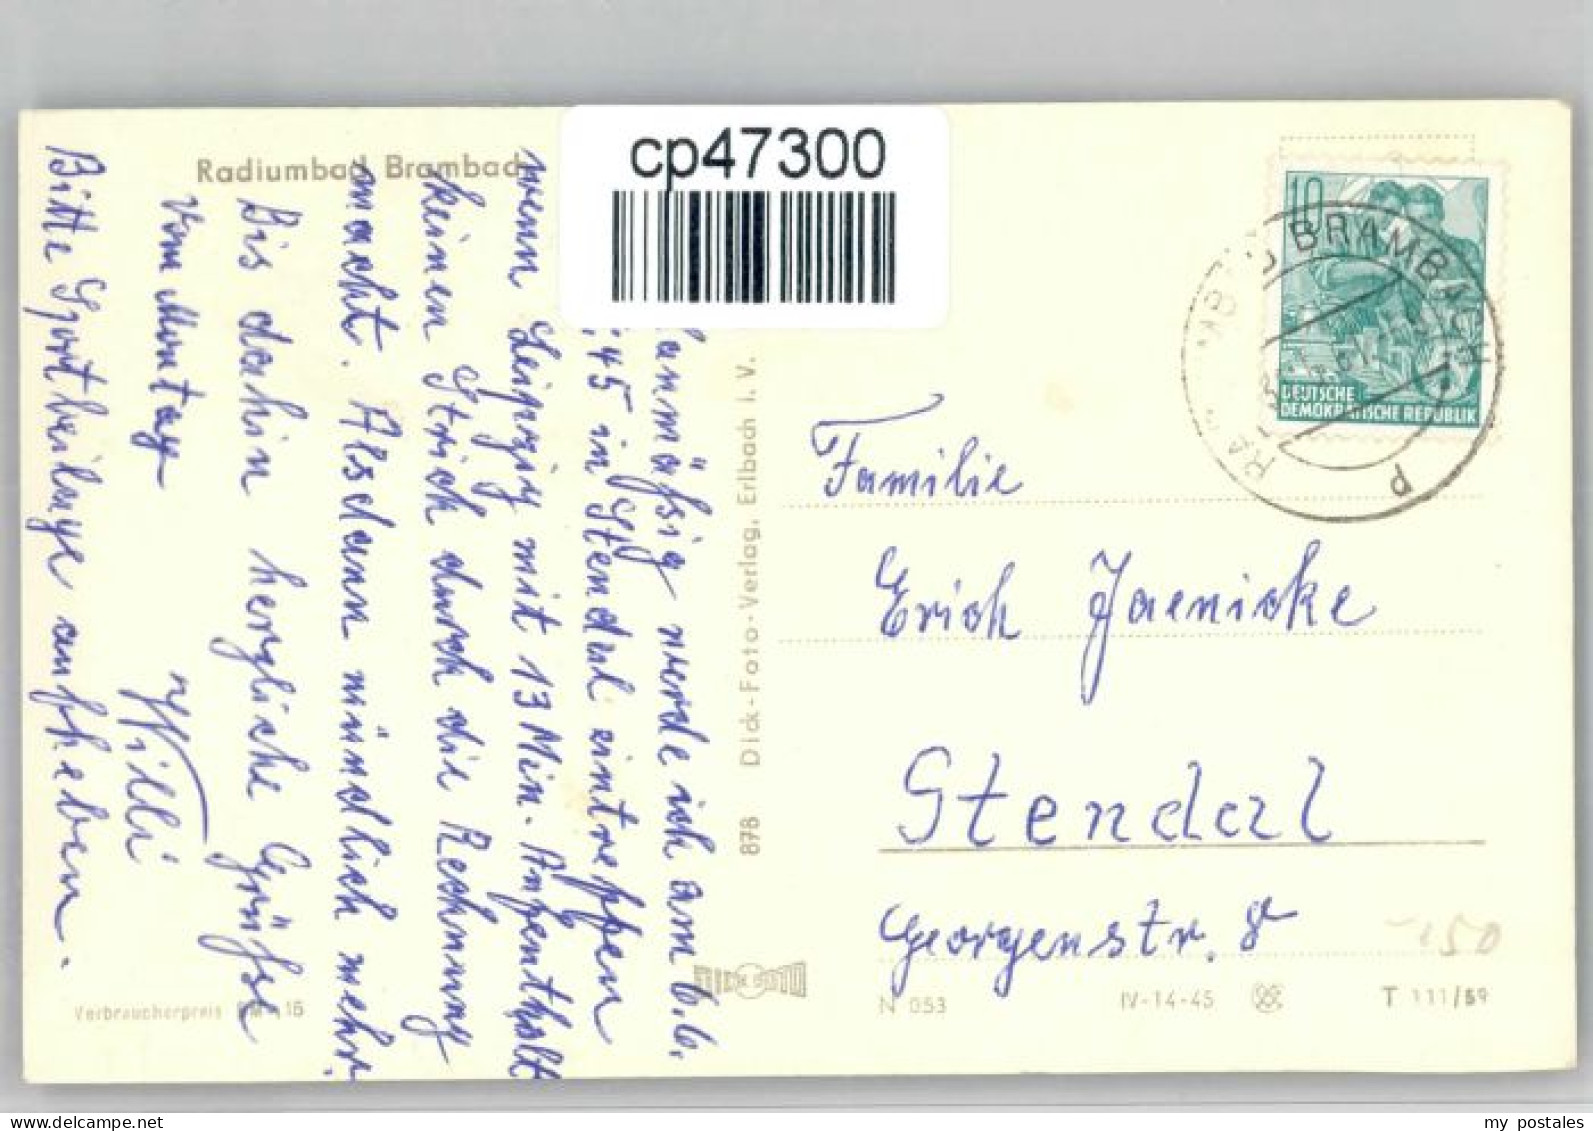 cp47300
Radiumbad Brambach
lanmäßig werde ich am 6.6.
,45 in Stendal eintreffen
wenn Leipzig mit 13 Min. Aufenthalt
keinen Strich durch die Rechnung
macht. Alsdann mündlich mehr.
Bis dahin herzliche Grüße
vom Montag
Willi
Bitte Sportbeilage aufheben.
Verbraucherpreis DM 15
878 Dick-Foto-Verlag, Erlbach i. V.
DICK FOTO
10
DEUTSCHE
DEMOKRATISCHE REPUBLIK
BRAMBACH
d
Familie
Erich Jaenicke
Stendal
Georgenstr. 8
150
N 053 IV-14-45 T 111/59
my postales